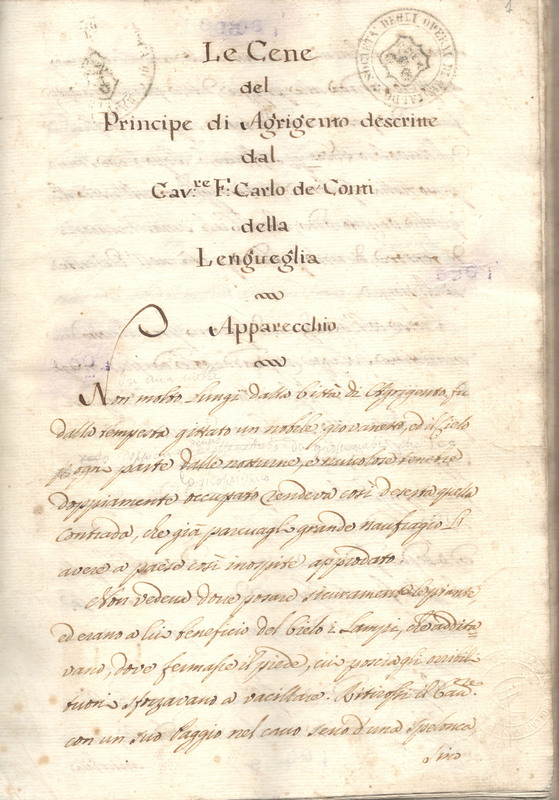 1
SOCIETÀ DEGLI OPERAI DI
Le Cene
del
Principe di Agrigento descritte
dal
Cav:re F: Carlo de' Conti
della
Lengueglia
Apparecchio
Non molto lungi dalla Città di Agrigento, fu
dalla tempesta gittato un nobile giovanetto, ed il Cielo
ogni parte dalle notturne, e nuvolose tenebre
doppiamente occupato rendeva così deserta quella
Contrada, che già parevagli grande naufragio l'
avere a paese così inospite approdato.
Non vedeva dove posare sicuramente le piante,
ed erano a lui beneficio del Cielo i Lampi, che addita=
vano, dove fermasse il piede, cui poscia gli orribili
tuoni sforzavano a vacillare. Ritirossi il Cav:re
con un suo Paggio nel cavo seno d'una Spelonca
sino